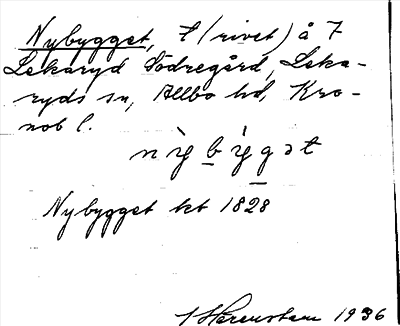 Nybygget, t (rivet) å 7
Lekaryd Södregård, Leka-
ryds sn, Allbo hd, Kro-
nob l.
nỳbýgət
Nybygget kt 1828
1936